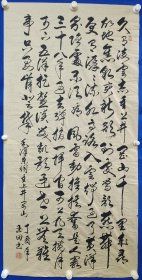 久有凌云志重上井冈山千里来寻
故地旧貌变新颜到处莺歌燕舞
更有潺潺流水高路入云端过了黄洋
界险处不须看风雷动旌旗奋是人寰
三十八年过去弹指一挥间可上九天揽月
可下五洋捉鳖谈笑凯歌还世上无难
事只要肯登攀
毛泽东词重上井冈山